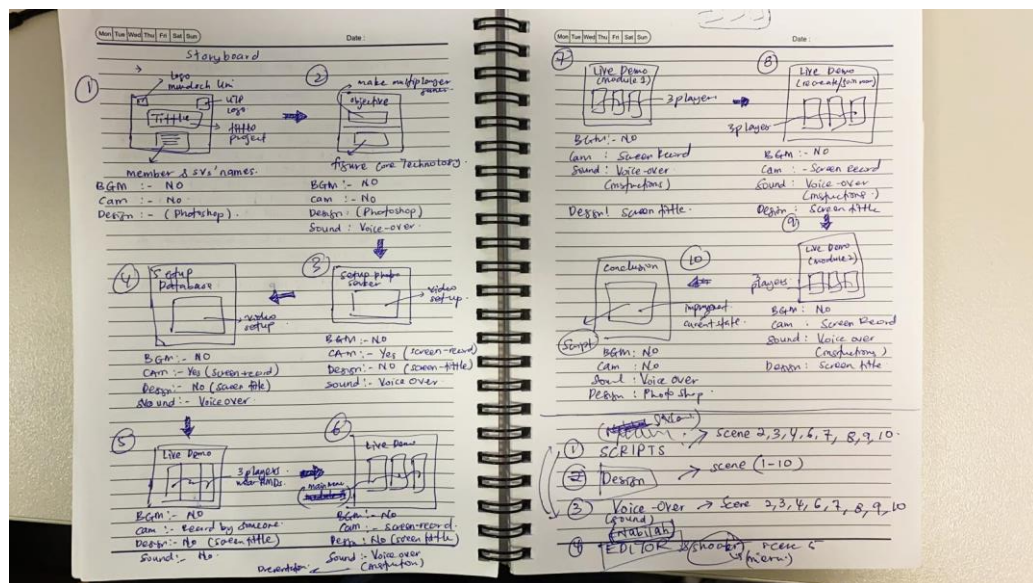 Mon Tue Wed Thu Fri Sat Sun
Date :
Storyboard
①
logo
murdoch Uni
UTP
logo
Tittle
tittle
project
member & svs' names.
BGM :- NO
Cam :- No
Design :- (Photoshop).
②
make multiplayer
game
objective
figure core Technology.
BGM :- NO
cam :- No
Design : (Photoshop)
Sound : Voice-over.
③
setup
server
video
set-up.
BGM :- NO
CAM :- Yes (screen-record)
Design :- NO (screen-tittle)
Sound :- Voice Over
④
Setup
Database
video
setup.
BGM :- NO
CAM :- Yes (screen-record)
Design :- No (screen title)
Sound :- Voice over.
⑤
Live Demo
3 players
wear HMDs.
BGM :- NO
Cam :- Record by someone.
Design :- No (screen tittle)
Sound :- No.
⑥
Live Demo
main menu
BGM :- NO
Cam :- screen-record.
Design : No (screen tittle)
Sound :- Voice over
(instruction)
Mon Tue Wed Thu Fri Sat Sun
Date :
⑦
Live Demo
(module 1)
3 players
BGM :- NO
Cam : Screen Record
Sound : Voice-over
(instructions)
Design : Screen tittle.
⑧
Live Demo
3 player
BGM :- NO
Cam :- Screen Record
Sound : Voice-over
(instructions.)
Design : Screen tittle
⑨
Live Demo
(module 2)
3
players
BGM : NO
Cam : Screen Record
Sound : Voice over
(instructions)
Design : Screen title
⑩
Conclusion
improvement
current state.
Script
BGM : NO
Cam : NO
Sound : Voice over
Design : PhotoShop
① SCRIPTS → scene 2,3,4,6,7,8,9,10.
② Design → scene (1-10)
③ Voice-Over → Scene 2,3,4,6,7,8,9,10
(sound)
(Nabilah)
④ EDITOR & shooter scene 5